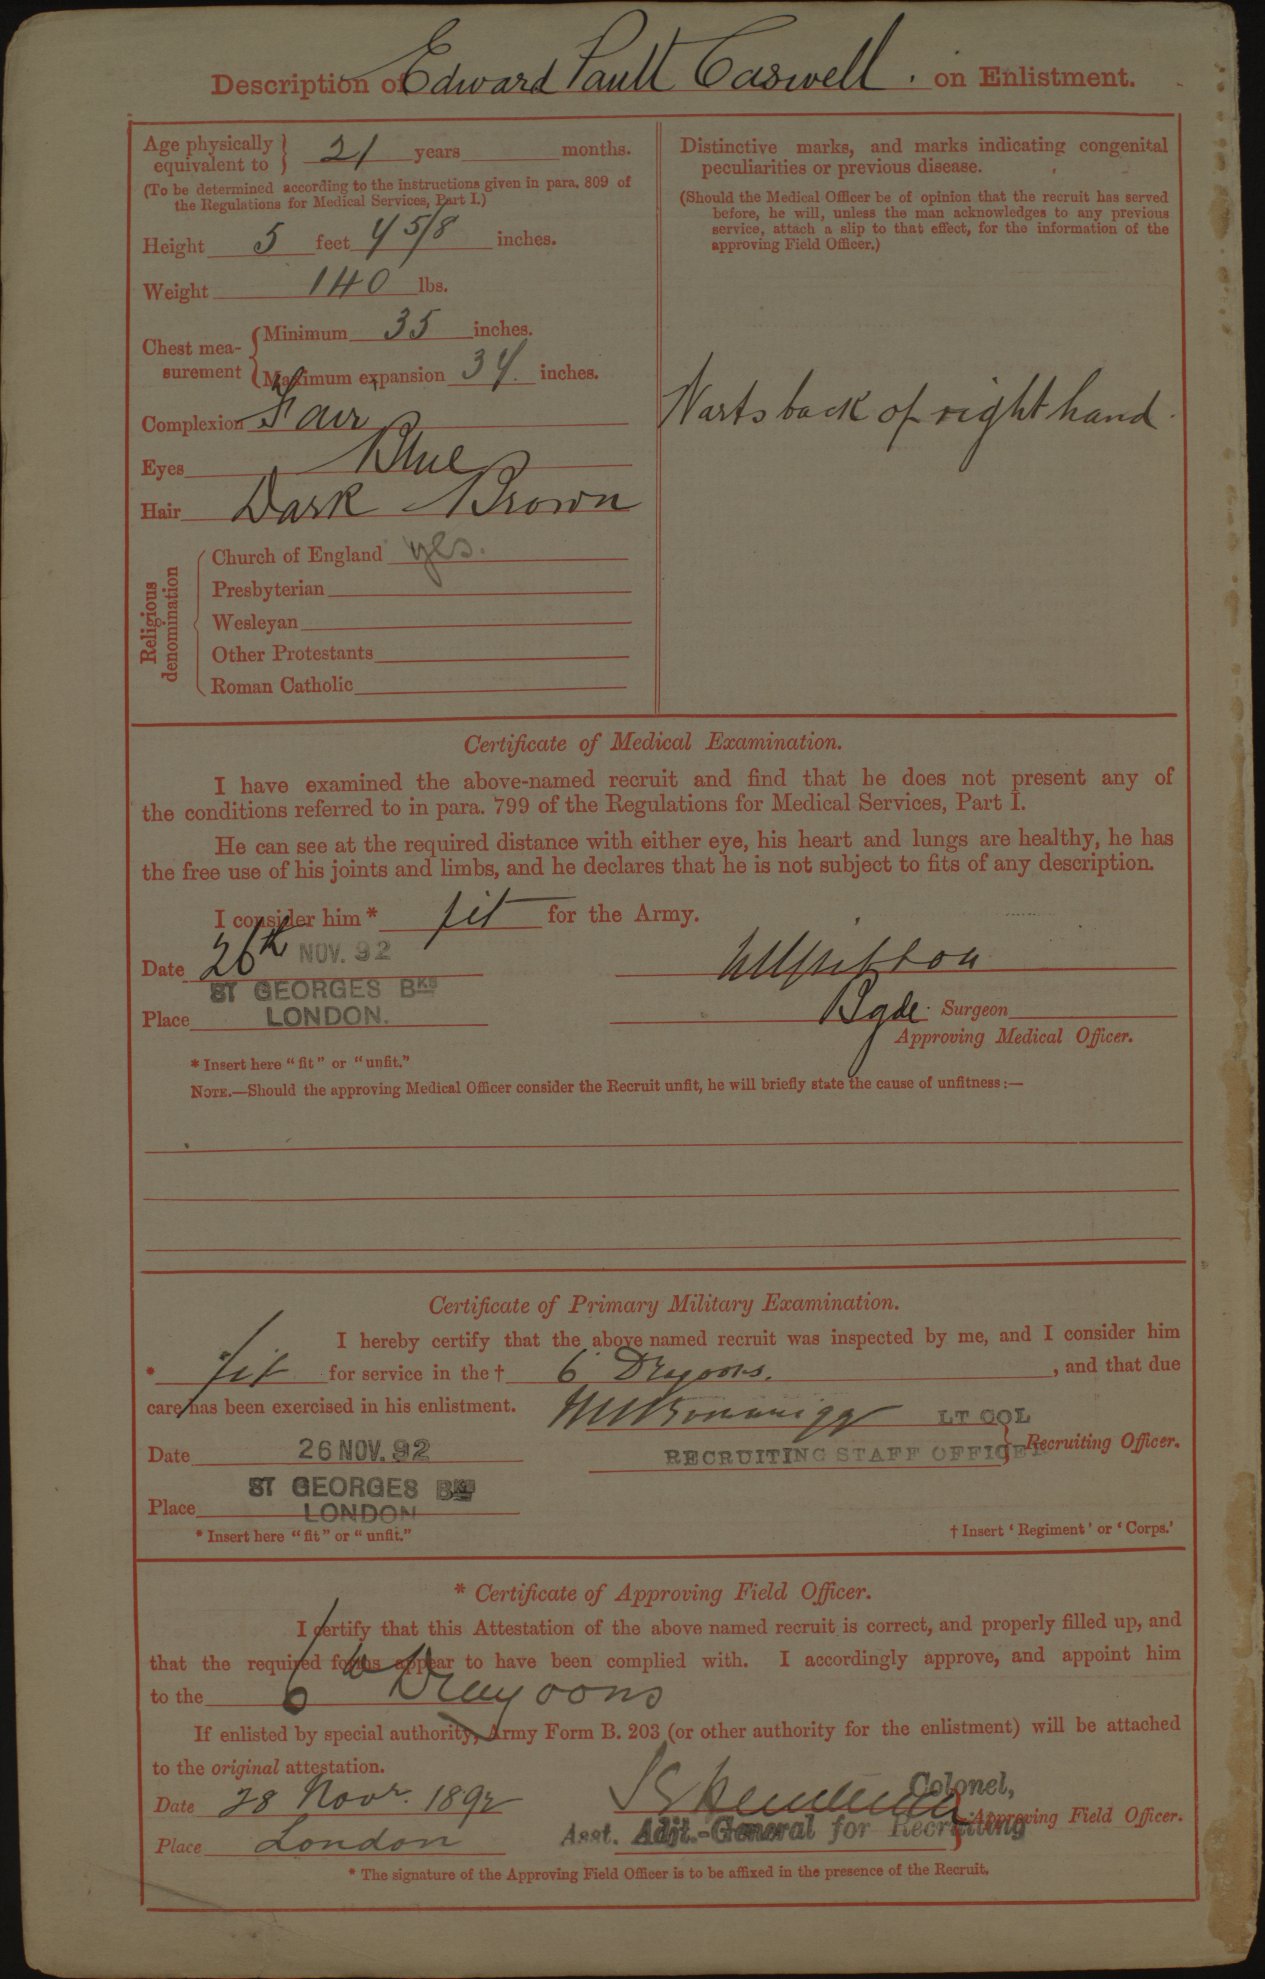 Description of Edward Pault Caswell. on Enlistment.
Age physically equivalent to } 21 years months.
(To be determined according to the instructions given in para. 809 of
the Regulations for Medical Services, Part I.)
Height 5 feet 4 5/8 inches.
Weight 140 lbs.
Chest measurement { Minimum 35 inches.
Maximum expansion 34 inches.
Complexion Fair
Eyes Blue
Hair Dark Brown
Religious denomination
Church of England yes.
Presbyterian
Wesleyan
Other Protestants
Roman Catholic
Distinctive marks, and marks indicating congenital
peculiarities or previous disease.
(Should the Medical Officer be of opinion that the recruit has served
before, he will, unless the man acknowledges to any previous
service, attach a slip to that effect, for the information of the
approving Field Officer.)
Warts back of right hand.
Certificate of Medical Examination.
I have examined the above-named recruit and find that he does not present any of
the conditions referred to in para. 799 of the Regulations for Medical Services, Part I.
He can see at the required distance with either eye, his heart and lungs are healthy, he has
the free use of his joints and limbs, and he declares that he is not subject to fits of any description.
I consider him * fit for the Army.
Date 26th NOV. 92
ST GEORGES BKS
Place LONDON.
Bgde. Surgeon
Approving Medical Officer.
* Insert here "fit" or "unfit."
NOTE.—Should the approving Medical Officer consider the Recruit unfit, he will briefly state the cause of unfitness:—
Certificate of Primary Military Examination.
I hereby certify that the above named recruit was inspected by me, and I consider him
* fit for service in the † 6 Dragoons. , and that due
care has been exercised in his enlistment.
LT COL
RECRUITING STAFF OFFICER } Recruiting Officer.
Date 26 NOV. 92
ST GEORGES BKS
Place LONDON
* Insert here "fit" or "unfit."
† Insert 'Regiment' or 'Corps.'
* Certificate of Approving Field Officer.
I certify that this Attestation of the above named recruit is correct, and properly filled up, and
that the required forms appear to have been complied with. I accordingly approve, and appoint him
to the 6th Dragoons
If enlisted by special authority, Army Form B. 203 (or other authority for the enlistment) will be attached
to the original attestation.
Date 28 Novr. 1892
Colonel,
Place London
Asst. Adjt.-General for Recruiting } Approving Field Officer.
* The signature of the Approving Field Officer is to be affixed in the presence of the Recruit.